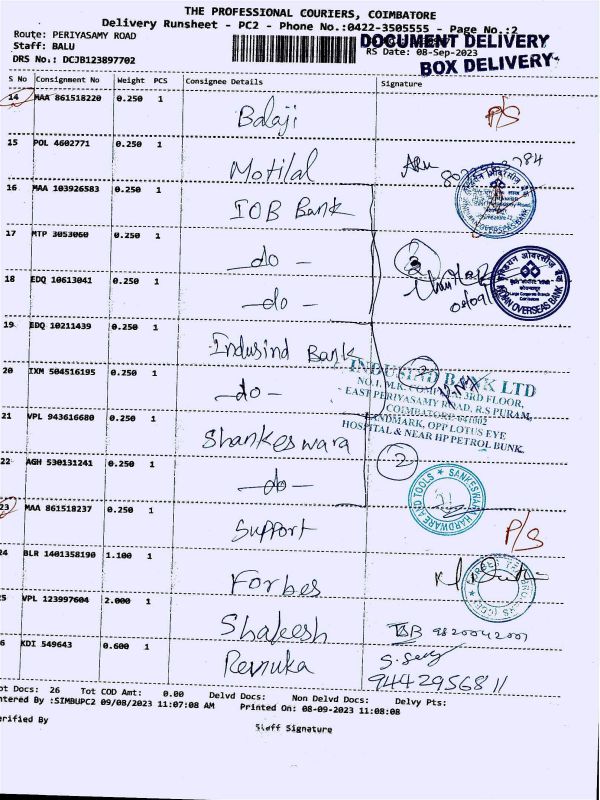 THE PROFESSIONAL COURIERS, COIMBATORE
Delivery Runsheet - PC2 - Phone No.:0422-3505555 - Page No.:2
Route: PERIYASAMY ROAD
DOCUMENT DELIVERY
Staff: BALU
RS Date: 08-Sep-2023
DRS No.: DCJB123897702
BOX DELIVERY
S No Consignment No Weight PCS Consignee Details Signature
14 MAA 861518220 0.250 1 Balaji P/S
15 POL 4602771 0.250 1 Motilal
16 MAA 103926583 0.250 1 IOB Bank
17 MTP 3053060 0.250 1 -do- 3
इण्डियन ओवरसीज़ बैंक
INDIAN OVERSEAS BANK
18 EDQ 10613041 0.250 1 -do-
19 EDQ 10211439 0.250 1 Indusind Bank
20 IXM 504516195 0.250 1 -do- 2
INDUSIND BANK LTD
3RD FLOOR,
EAST PERIYASAMY ROAD, R.S PURAM,
COIMBATORE 641002
LANDMARK, OPP LOTUS EYE
HOSPITAL & NEAR HP PETROL BUNK.
21 VPL 943616680 0.250 1 Shankeswara
22 AGH 530131241 0.250 1 -do- 2
SANKESWARA HARDWARE AND TOOLS
23 MAA 861518237 0.250 1 Support P/S
24 BLR 1401358190 1.100 1 Forbes
5 VPL 123997604 2.000 1 Shaleesh
6 KDI 549643 0.600 1 Renuka
9442956811
ot Docs: 26 Tot COD Amt: 0.00 Delvd Docs: Non Delvd Docs: Delvy Pts:
ntered By :SIMBUPC2 09/08/2023 11:07:08 AM Printed On: 08-09-2023 11:08:08
erified By
Staff Signature